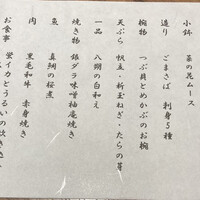 小鉢 菜の花ムース
造り ごまさば 刺身5種
椀物 つぶ貝とめかぶのお椀
天ぷら 帆立・新玉ねぎ・たらの芽
一品 八朔の白和え
焼き物 銀ダラ味噌柚庵焼き
魚 真鯛の桜煮
肉 黒毛和牛 赤身焼き
お食事 蛍イカとうるいの炊き込